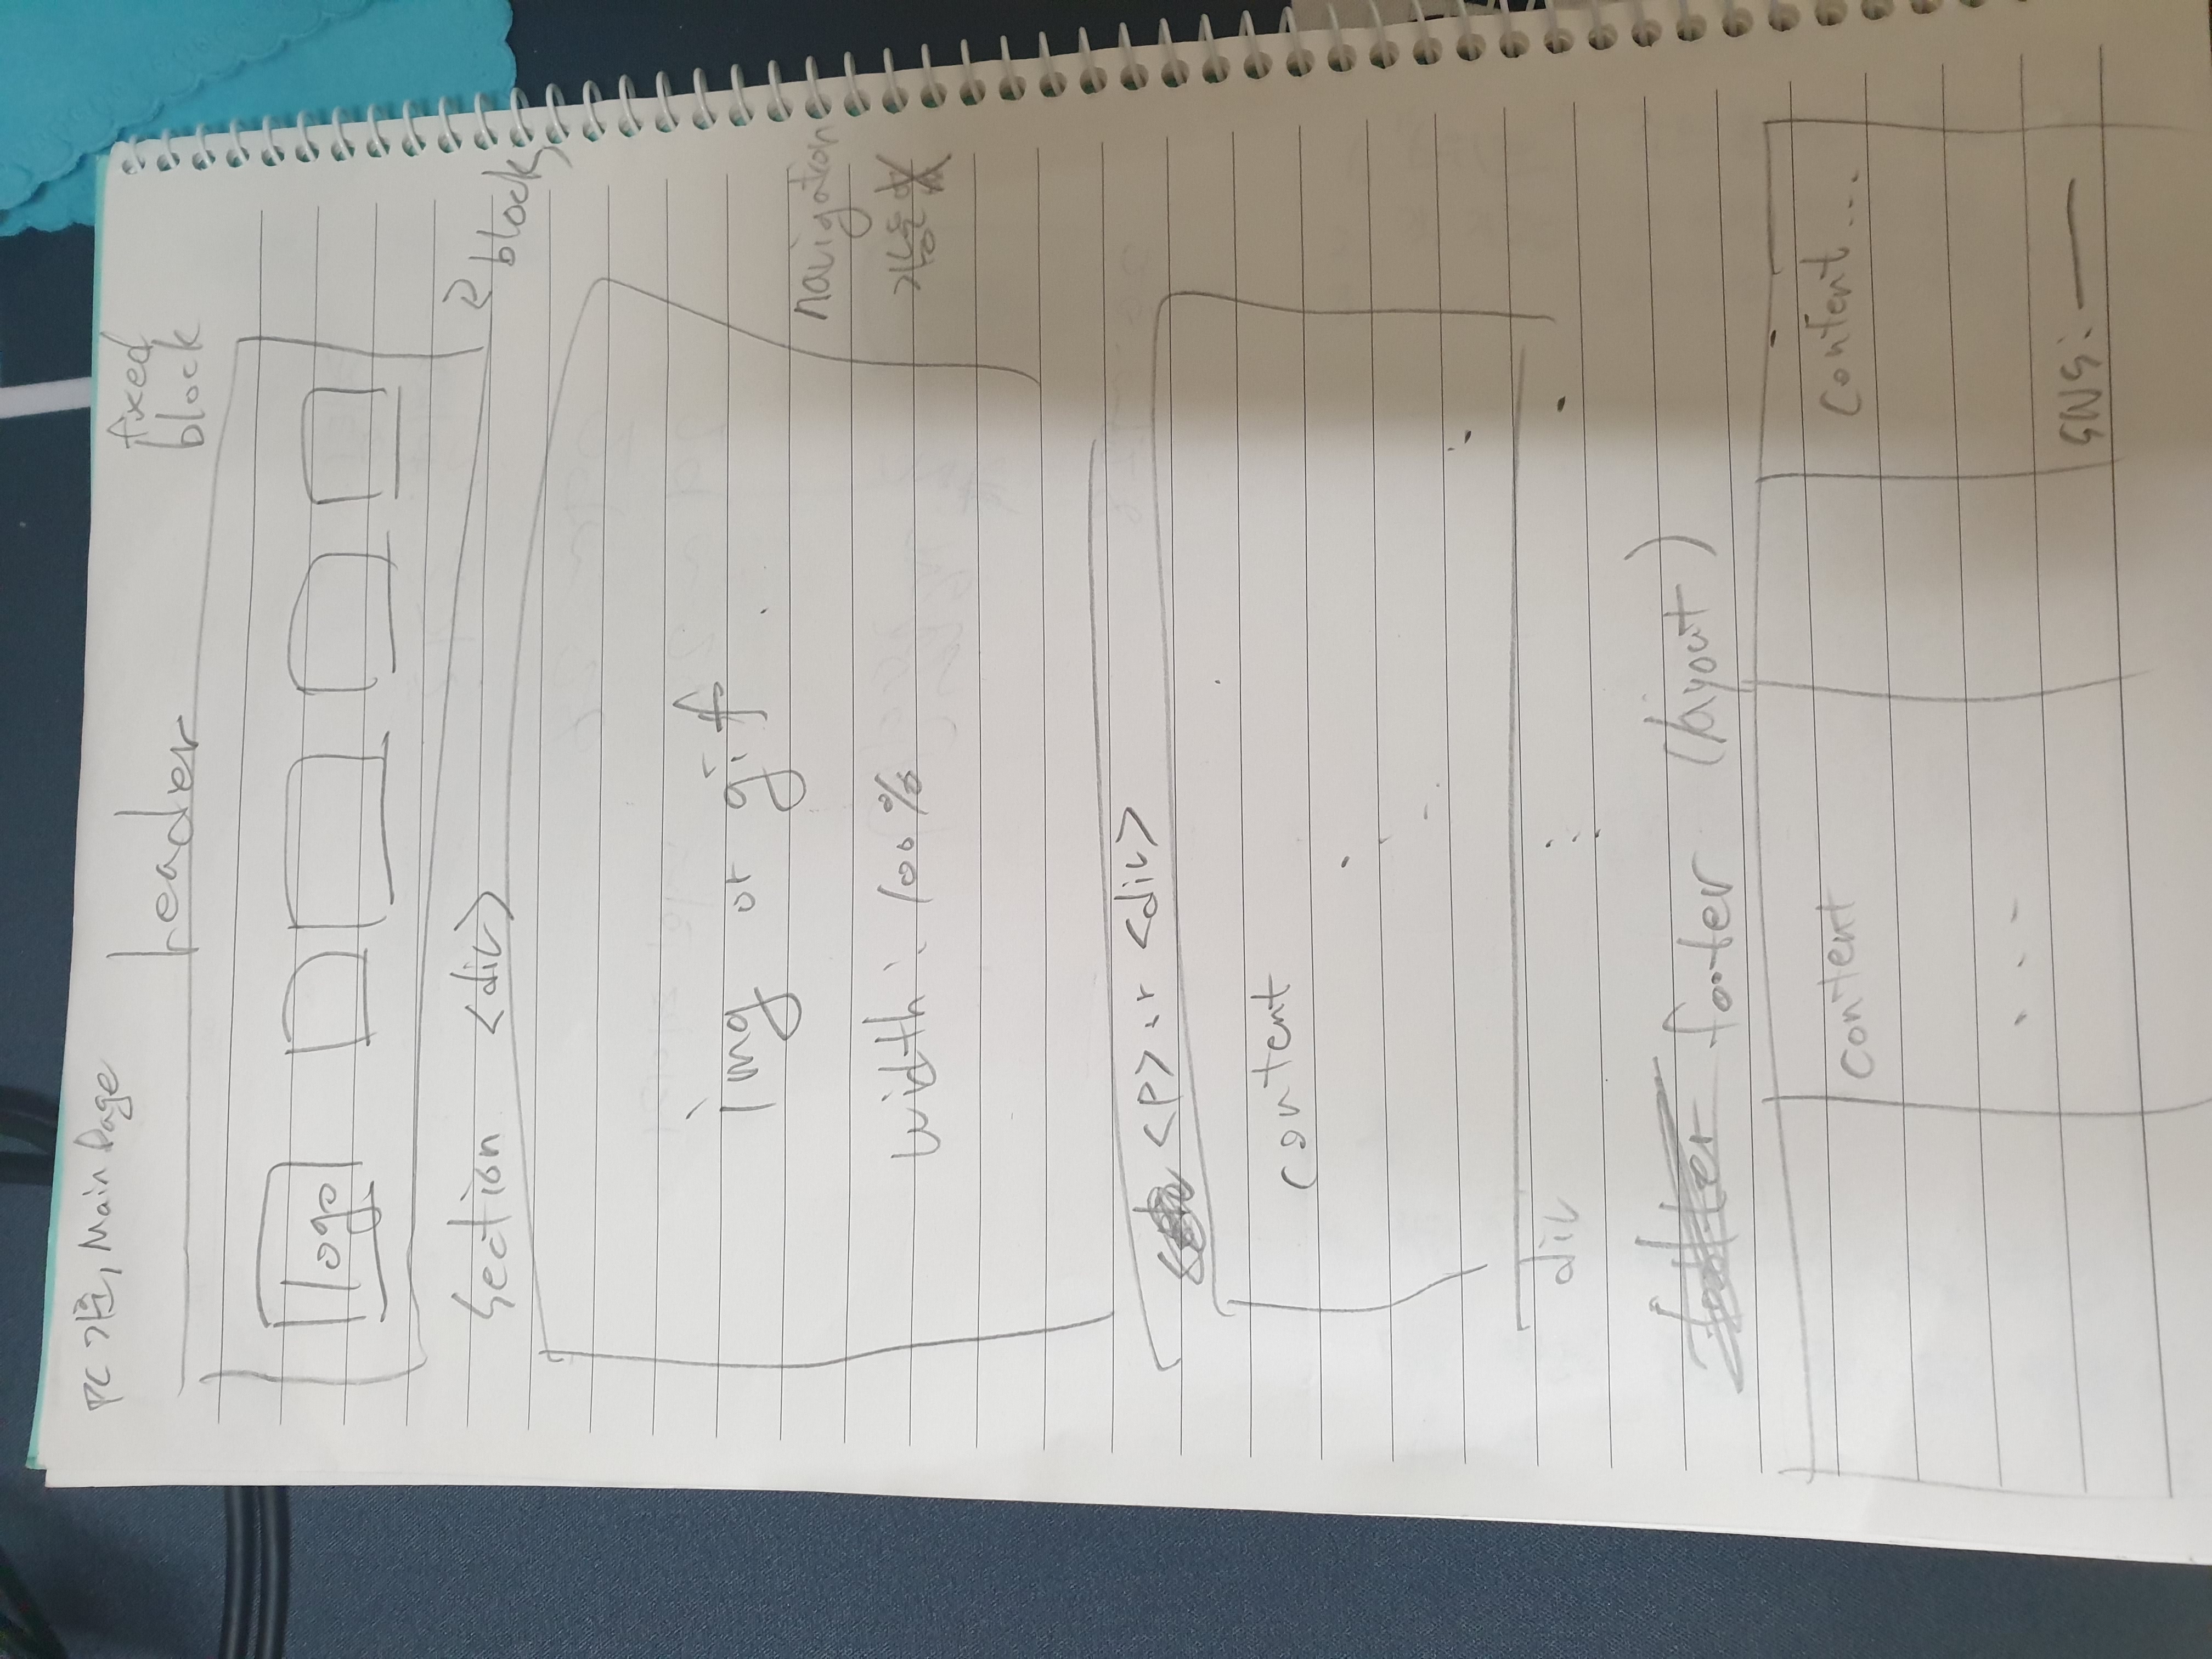 PC 기준, Main Page
header
fixed
block
logo
Section <div>
block
img or gif
width : 100%
navigation
기능은
<p> or <div>
content
div
footer (layout)
content
content...
...
SNS: